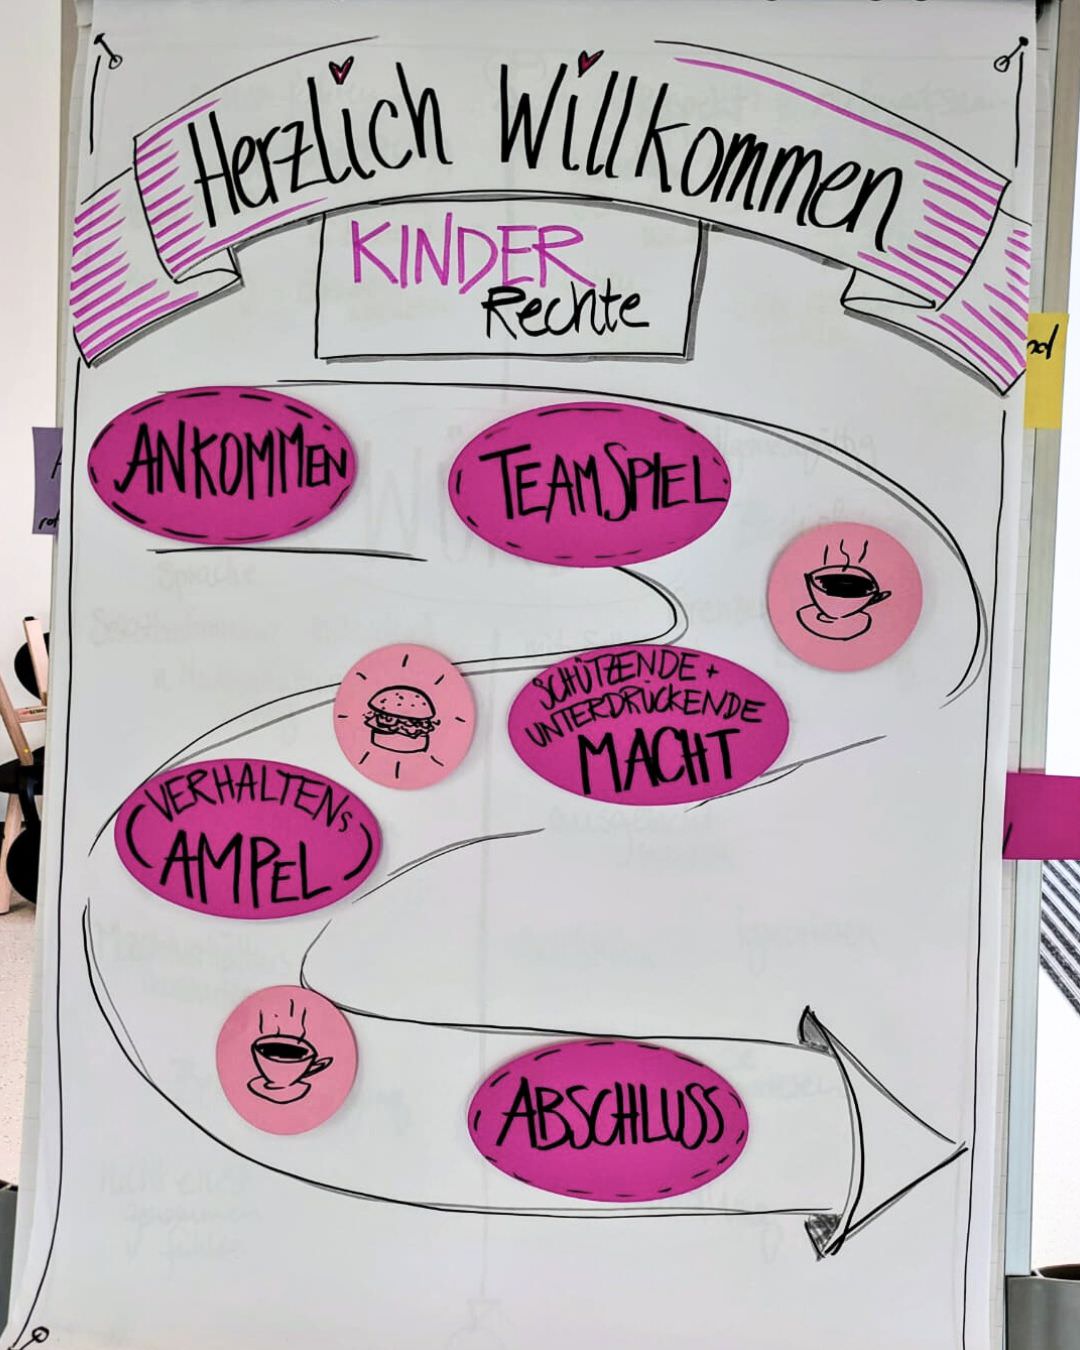 Herzlich Willkommen
KINDER
Rechte
ANKOMMEN
TEAMSPIEL
SCHÜTZENDE +
UNTERDRÜCKENDE
MACHT
VERHALTENS
AMPEL
ABSCHLUSS